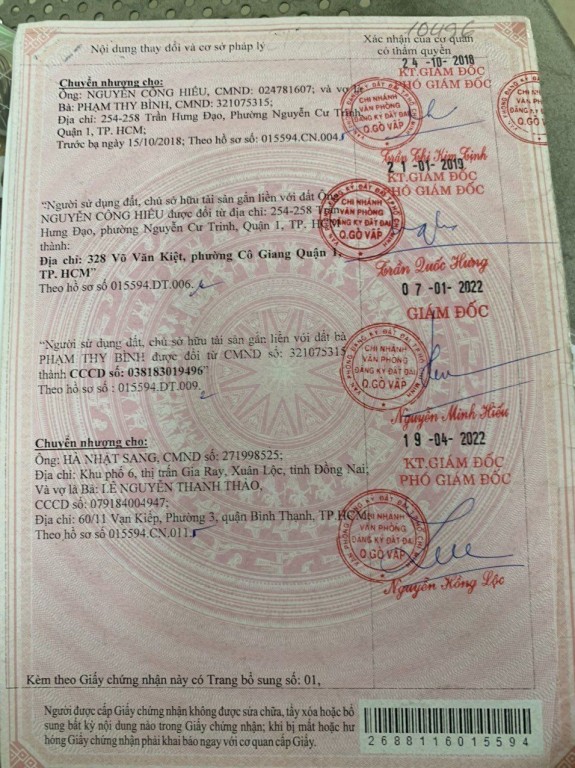 10496
Nội dung thay đổi và cơ sở pháp lý
Xác nhận của cơ quan
có thẩm quyền
24 -10- 2018
KT.GIÁM ĐỐC
PHÓ GIÁM ĐỐC
Chuyển nhượng cho:
Ông: NGUYỄN CÔNG HIẾU, CMND: 024781607; và vợ là
Bà: PHẠM THY BÌNH, CMND: 321075315;
Địa chỉ: 254-258 Trần Hưng Đạo, Phường Nguyễn Cư Trinh,
Quận 1, TP. HCM;
Trước bạ ngày 15/10/2018; Theo hồ sơ số: 015594.CN.004
CHI NHÁNH
VĂN PHÒNG
ĐĂNG KÝ ĐẤT ĐAI
Q.GÒ VẤP
Trần Thị Kim Định
21 -01- 2019
KT.GIÁM ĐỐC
PHÓ GIÁM ĐỐC
"Người sử dụng đất, chủ sở hữu tài sản gắn liền với đất Ông
NGUYỄN CÔNG HIẾU được đổi từ địa chỉ: 254-258 Trần
Hưng Đạo, phường Nguyễn Cư Trinh, Quận 1, TP. HCM
thành:
Địa chỉ: 328 Võ Văn Kiệt, phường Cô Giang Quận 1,
TP. HCM"
Theo hồ sơ số 015594.DT.006.
CHI NHÁNH
VĂN PHÒNG
ĐĂNG KÝ ĐẤT ĐAI
Q.GÒ VẤP
Trần Quốc Hưng
07 -01- 2022
GIÁM ĐỐC
"Người sử dụng đất, chủ sở hữu tài sản gắn liền với đất bà
PHẠM THY BÌNH được đổi từ CMND số: 321075315
thành CCCD số: 038183019496"
Theo hồ sơ số : 015594.DT.009.
CHI NHÁNH
VĂN PHÒNG
ĐĂNG KÝ ĐẤT ĐAI
Q.GÒ VẤP
Nguyễn Minh Hiếu
19 -04- 2022
KT.GIÁM ĐỐC
PHÓ GIÁM ĐỐC
Chuyển nhượng cho:
Ông: HÀ NHẬT SANG, CMND số: 271998525;
Địa chỉ: Khu phố 6, thị trấn Gia Ray, Xuân Lộc, tỉnh Đồng Nai;
Và vợ là Bà: LÊ NGUYỄN THANH THẢO,
CCCD số: 079184004947;
Địa chỉ: 60/11 Vạn Kiếp, Phường 3, quận Bình Thạnh, TP.HCM;
Theo hồ sơ số 015594.CN.011
CHI NHÁNH
VĂN PHÒNG
ĐĂNG KÝ ĐẤT ĐAI
Q.GÒ VẤP
Nguyễn Hồng Lộc
Kèm theo Giấy chứng nhận này có Trang bổ sung số: 01,
Người được cấp Giấy chứng nhận không được sửa chữa, tẩy xóa hoặc bổ
sung bất kỳ nội dung nào trong Giấy chứng nhận; khi bị mất hoặc hư
hỏng Giấy chứng nhận phải khai báo ngay với cơ quan cấp Giấy.
2688116015594